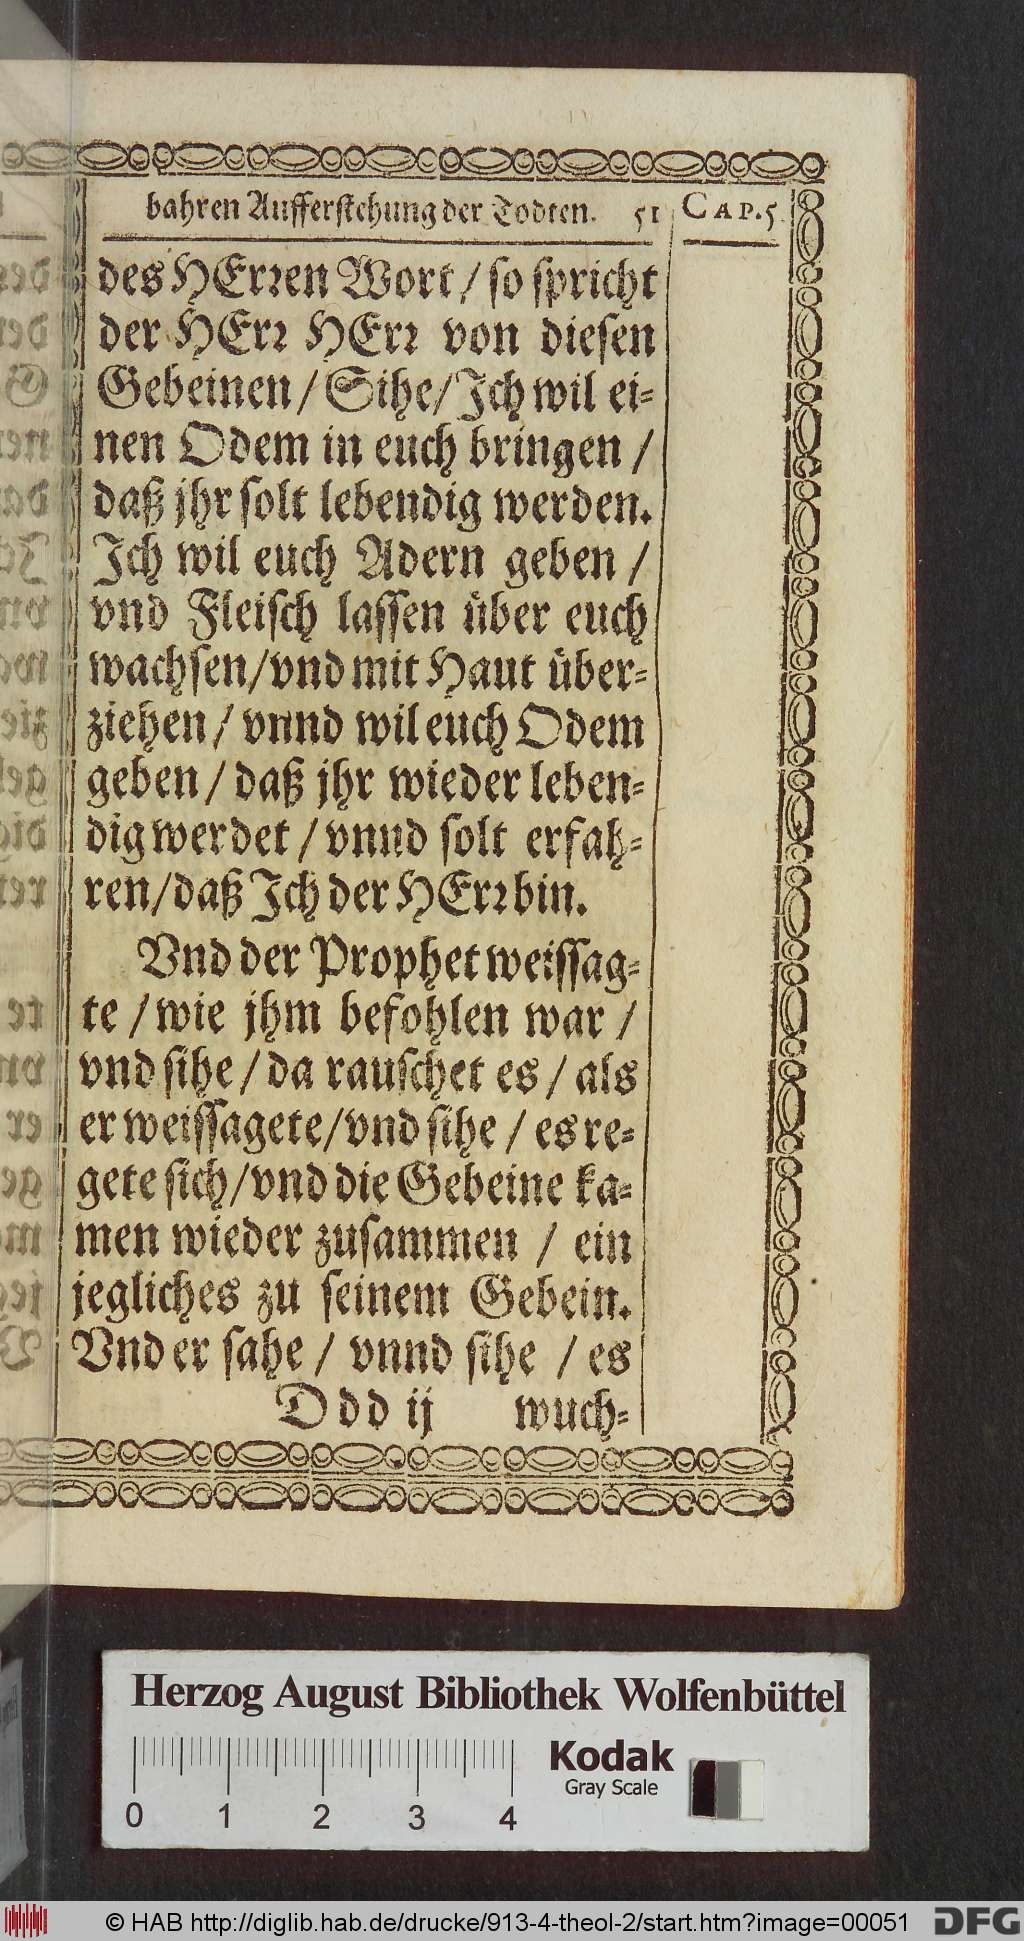 bahren Aufferstehung der Todten. 51 CAP. 5.
des HErꝛen Wort / so spricht
der HErꝛ HErꝛ von diesen
Gebeinen / Sihe / Ich wil ei⸗
nen Odem in euch bringen /
daß jhr solt lebendig werden.
Ich wil euch Adern geben /
vnd Fleisch lassen über euch
wachsen / vnd mit Haut über⸗
ziehen / vnnd wil euch Odem
geben / daß jhr wieder leben⸗
dig werdet / vnnd solt erfah⸗
ren / daß Ich der HErꝛ bin.
Vnd der Prophet weissag⸗
te / wie jhm befohlen war /
vnd sihe / da rauschet es / als
er weissagete / vnd sihe / es re⸗
gete sich / vnd die Gebeine ka⸗
men wieder zusammen / ein
jegliches zu seinem Gebein.
Vnd er sahe / vnnd sihe / es
Ddd ij wuch⸗
Herzog August Bibliothek Wolfenbüttel
Kodak
Gray Scale
0 1 2 3 4
© HAB http://diglib.hab.de/drucke/913-4-theol-2/start.htm?image=00051
DFG